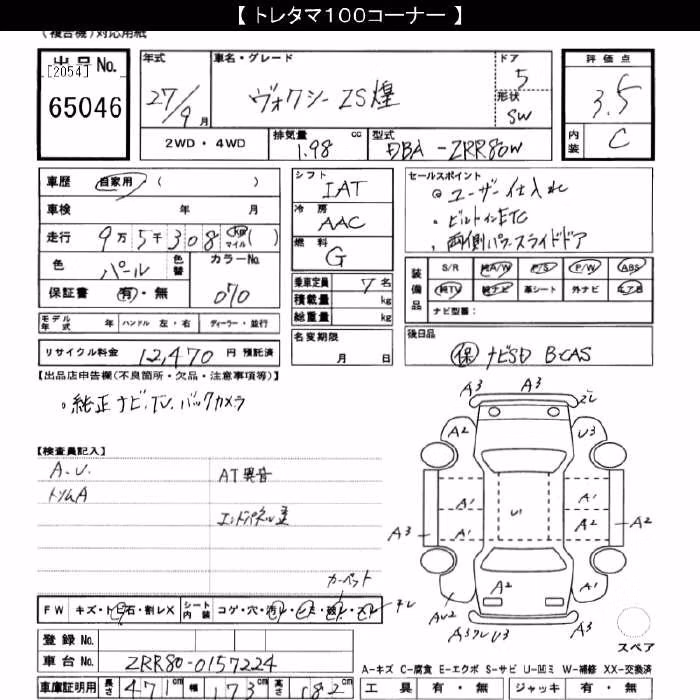 【 トレタマ100コーナー 】
(複合機)対応用紙
出品No.
[2054]
65046
年式
27/9月
車名・グレード
ヴォクシー ZS煌
ドア
5
形状
SW
評価点
3.5
内装
C
2WD・4WD
排気量
1.98 cc
型式
DBA-ZRR80W
車歴 自家用 ( )
車検 年 月
走行 9万5千308 km マイル ( )
色 パール 色替 カラーNo. 070
保証書 有・無
シフト
IAT
冷房
AAC
燃料
G
乗車定員 7名
積載量 kg
総重量 kg
セールスポイント
ユーザー仕入れ
・ビルトインETC
・両側パワースライドドア
装備品
S/R 純A/W P/S P/W ABS
純TV 純ナビ 革シート 外ナビ エアB
ナビ型番:
モデル年式 年 ハンドル 左・右 ディーラー・並行
リサイクル料金 12,470 円 預託済
名変期限
月 日
後日品
保 ナビSD B-CAS
【出品店申告欄(不良箇所・欠品・注意事項等)】
。純正ナビ.TV.バックカメラ
【検査員記入】
A.U.
トリムA
AT異音
エンドパネル歪
カーペット
A3 A3
A2 U3
A1 A1
A3 A1 U1 A2 A2
A2 A1
AU2
U3
FW キズ・トビ石・割レX
シート内装 コゲ・穴・汚レ・シミ・破レ・スレ
スペア
登録No.
車台No. ZRR80-0157224
車庫証明用 長さ 471cm 幅 173cm 高さ 182cm
A-キズ C-腐食 E-エクボ S-サビ U-凹ミ W-補修 XX-交換済
工具 有・無 ジャッキ 有・無